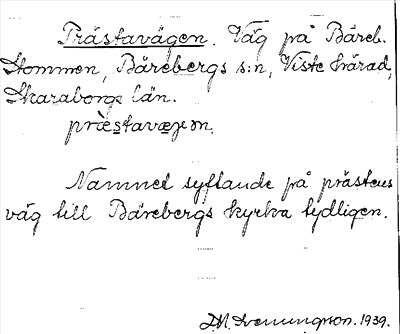 Prästavägen. Väg på Båreb.
Stommen, Bårebergs s:n, Viste härad,
Skaraborgs län.
præ̀stavæǥen.
Namnet syftande på prästens
väg till Bårebergs kyrka tydligen.
Svenungson. 1939.